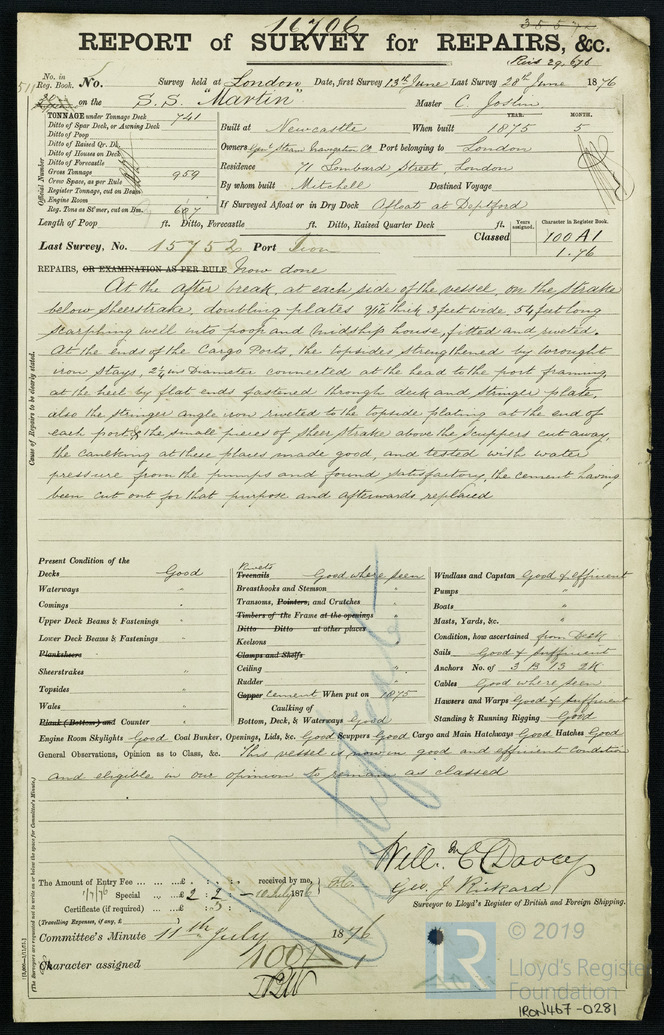 16706
REPORT of SURVEY for REPAIRS, &c.
Recd 29.6.76
No. in Reg. Book.
No. Survey held at London Date, first Survey 13th June Last Survey 28th June 1876
on the S.S. "Martin" Master C. Joslin
TONNAGE under Tonnage Deck 741
Ditto of Spar Deck, or Awning Deck
Ditto of Poop
Ditto of Raised Qr. Dk.
Ditto of Houses on Deck
Ditto of Forecastle
Gross Tonnage 959
Crew Space, as per Rule
Register Tonnage, cut on Beam
Engine Room
Reg. Tons as St'mer, cut on Bm. 607
Official Number
YEAR. MONTH.
Built at Newcastle When built 1875 5
Owners Genl Steam Navigation Co Port belonging to London
Residence 71 Lombard Street, London
By whom built Mitchell Destined Voyage
If Surveyed Afloat or in Dry Dock Afloat at Deptford
Length of Poop ft. Ditto, Forecastle ft. Ditto, Raised Quarter Deck ft.
Years assigned. Character in Register Book.
Classed 100 A1
1.76
Last Survey, No. 15752 Port Iron
REPAIRS, OR EXAMINATION AS PER RULE Now done
At the after break, at each side of the vessel, on the strake
below Sheerstrake, doubling plates 9/16 thick 3 feet wide, 54 feet long
scarphing well into poop and Midship house, fitted and riveted.
At the ends of the Cargo Ports, the topsides strengthened by wrought
iron stays, 2¼ ins Diameter connected at the head to the port framing,
at the heel by flat ends fastened through deck and stringer plate,
also the stringer angle iron riveted to the topside plating at the end of
each port & the small pieces of sheer strake above the scuppers cut away,
the caulking at these places made good, and tested with water
pressure from the pumps and found satisfactory, the cement having
been cut out for that purpose and afterwards replaced
Cause of Repairs to be clearly stated.
Present Condition of the
Decks Good
Waterways "
Comings "
Upper Deck Beams & Fastenings "
Lower Deck Beams & Fastenings "
Planksheers
Sheerstrakes "
Topsides "
Wales "
Plank (Bottom) and Counter "
Rivets
Treenails Good where seen
Breasthooks and Stemson "
Transoms, Pointers, and Crutches "
Timbers of the Frame at the openings "
Ditto Ditto at other places "
Keelsons "
Clamps and Shelfs
Ceiling "
Rudder "
Copper Cement When put on 1875
Caulking of
Bottom, Deck, & Waterways Good
Windlass and Capstan Good & efficient
Pumps "
Boats "
Masts, Yards, &c. "
Condition, how ascertained from Deck
Sails Good & sufficient
Anchors No. of 3 B 1 S 2 K
Cables Good where seen
Hawsers and Warps Good & sufficient
Standing & Running Rigging Good
Engine Room Skylights Good Coal Bunker, Openings, Lids, &c. Good Scuppers Good Cargo and Main Hatchways Good Hatches Good
General Observations, Opinion as to Class, &c. This vessel is now in good and efficient condition
and eligible in our opinion to remain as classed
Certificate
Will. McC Davey
Geo. J. Rickard
Surveyor to Lloyd's Register of British and Foreign Shipping.
The Amount of Entry Fee £ : : received by me,
1/7/76 Special £ 2 : 2 : — 10 July 1876
Certificate (if required) £ : 5 :
(Travelling Expenses, if any, £ )
Committee's Minute 11th July 1876
Character assigned 100A1
© 2019
Lloyd's Register
Foundation
LR
IRON467-0281